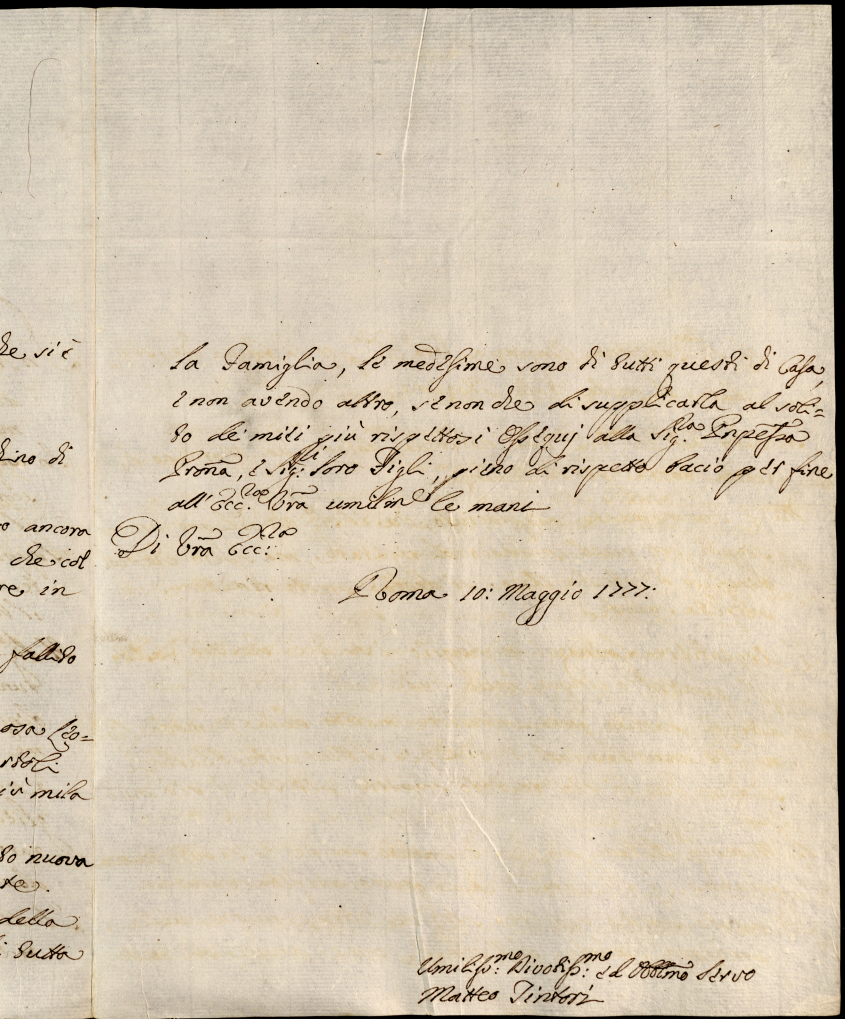 he si è
hino di
o ancora
che col
re in
fallito
osa Leo=
più mila
to nuova
te.
della
i tutta
la Famiglia, le medesime sono di tutti questi di Casa,
e non avendo altro, se non che di supplicarla al soli=
to de miei più rispettosi Ossequj alla Sig.ra Pnpessa
Prona, e Sig:li loro Figli, pieno di rispetto bacio per fine
all' Ecc.za Vra umilme le mani
Di Vra Ecc:za
Roma 10: Maggio 1777:
Umiliss:mo Divotiss:mo ed Obblmo Servo
Matteo Tintori